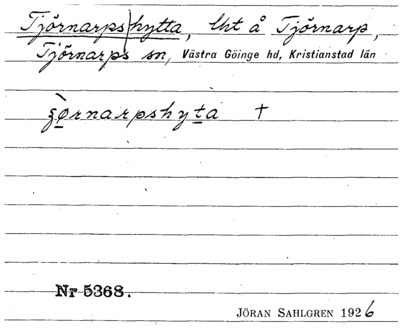 Tjörnarps)hytta, lht å Tjörnarp,
Tjörnarps sn, Västra Göinge hd, Kristianstad län
ʒø̀rnarpshyta †
Nr 5368.
JÖRAN SAHLGREN 1926